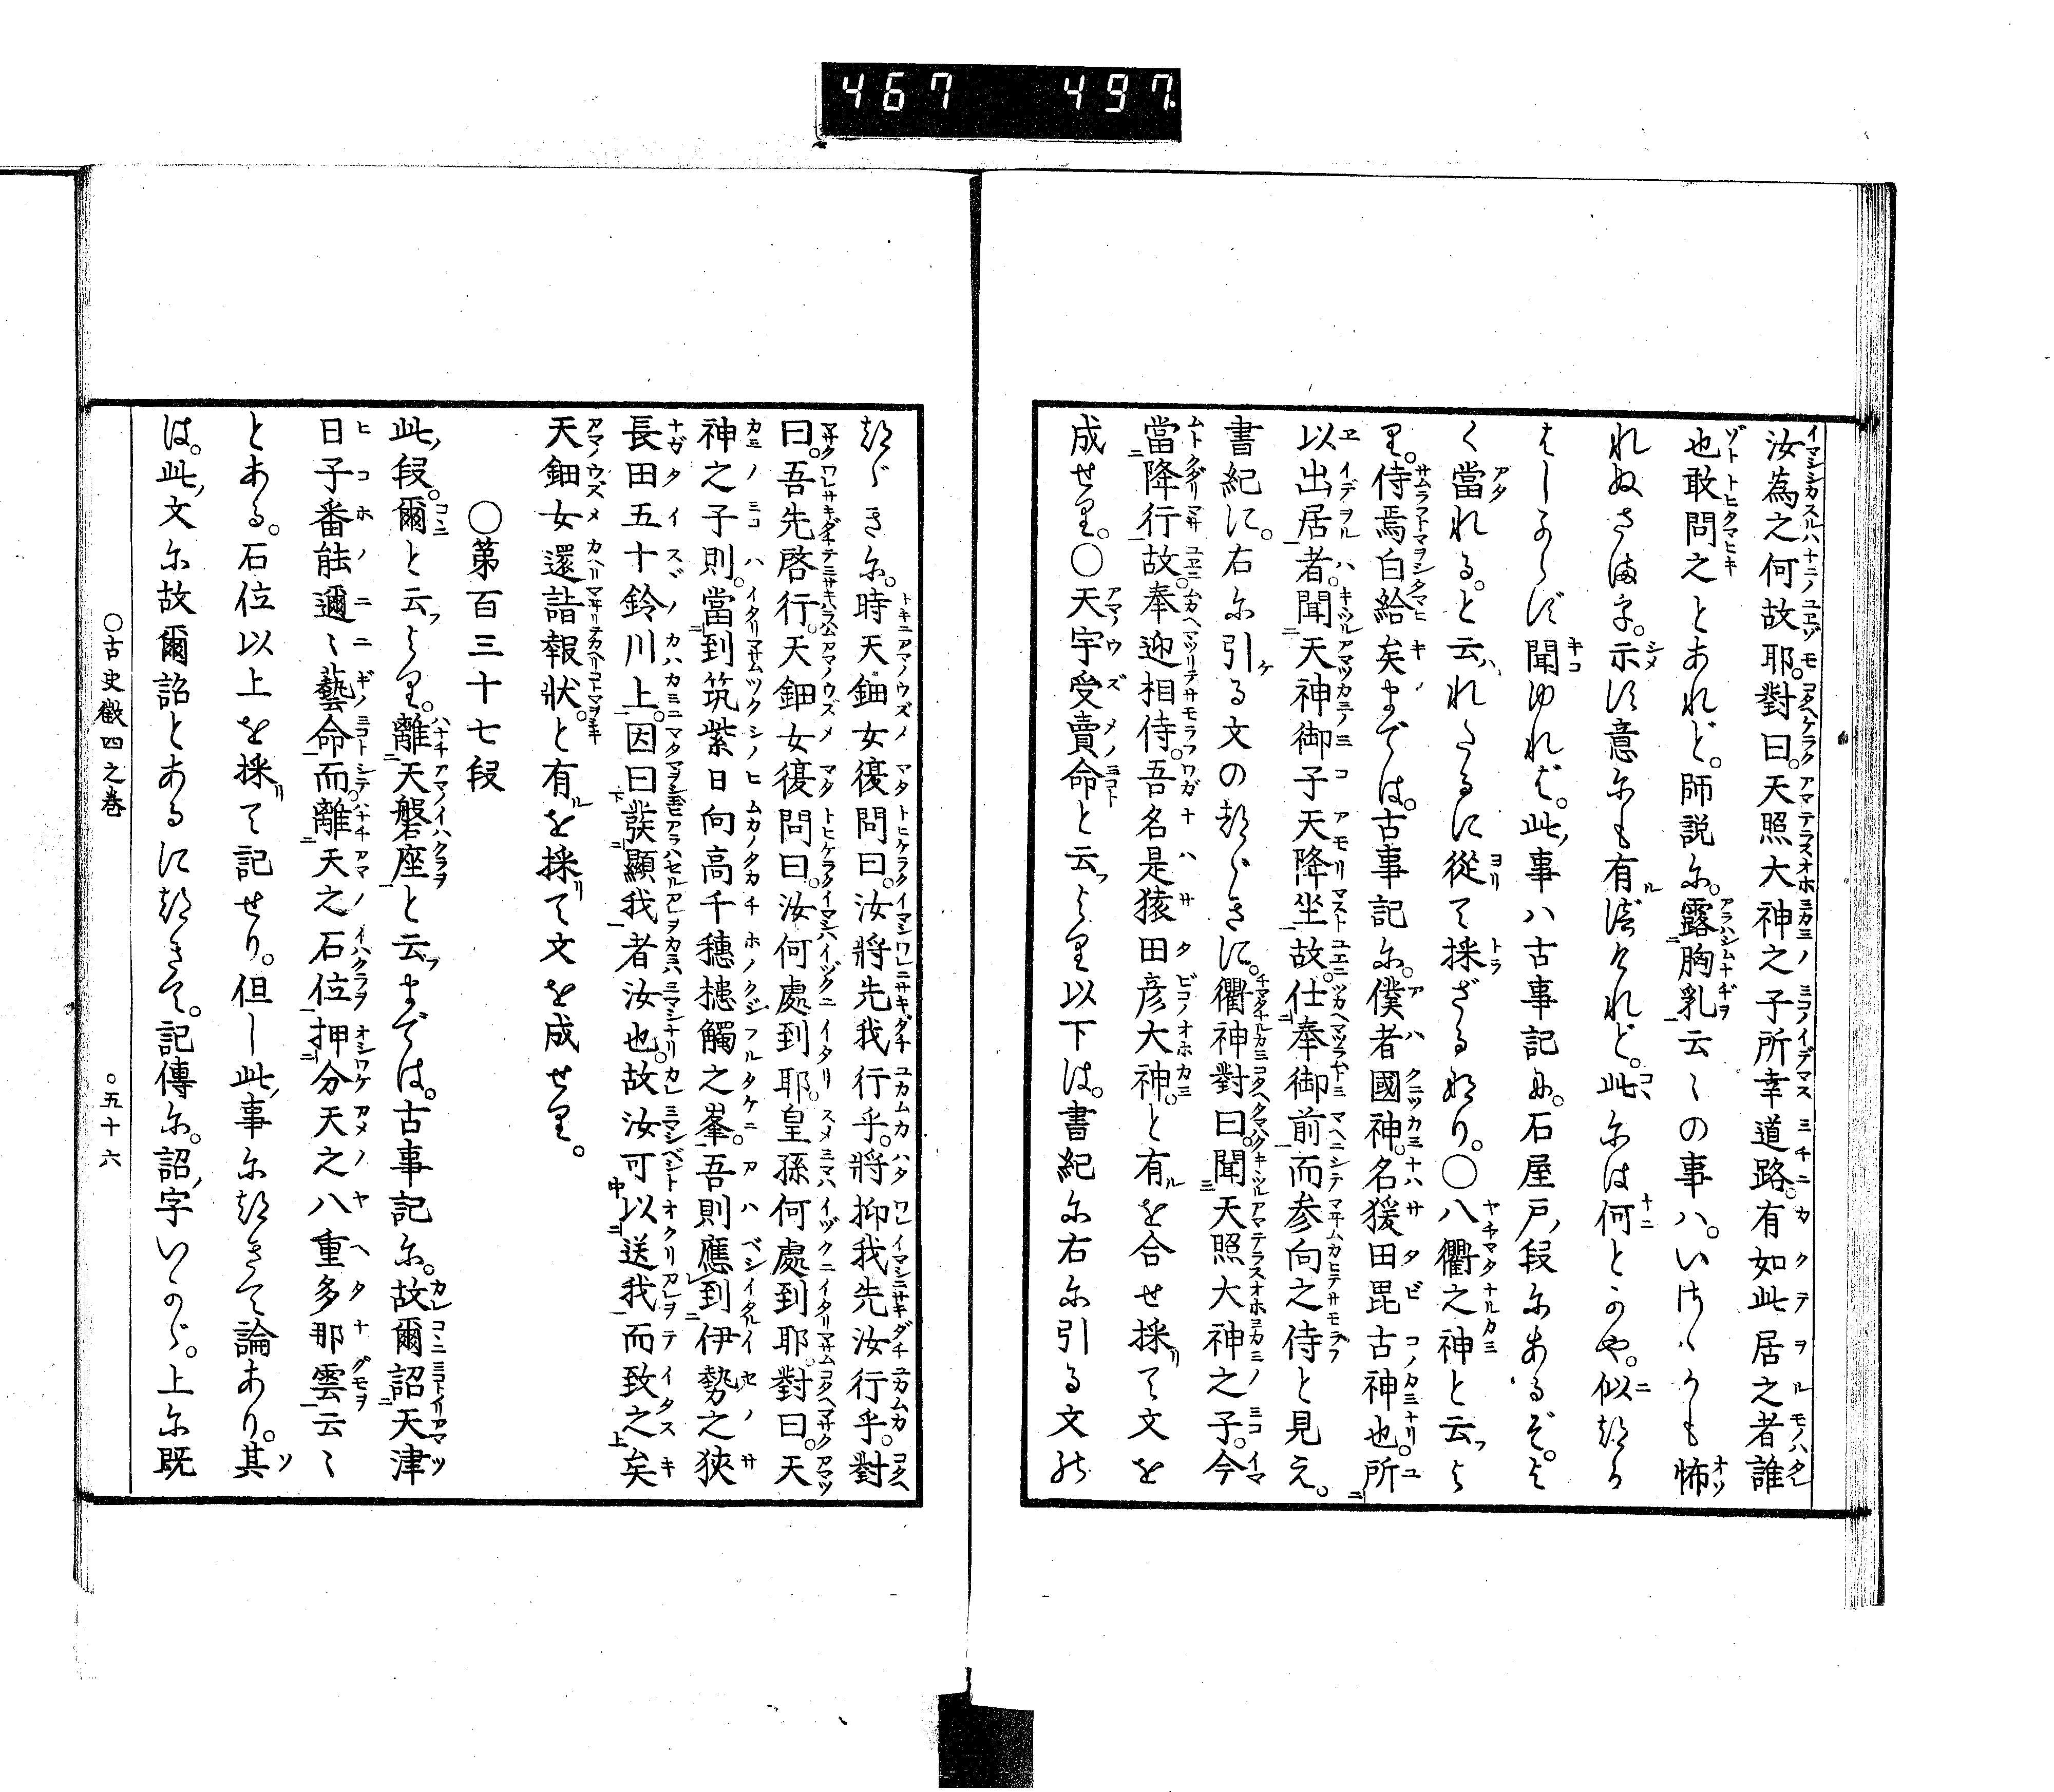 467 497.
汝為之何故耶。對曰。天照大神之子所幸道路。有如此居之者誰
也敢問之とあれど。師説に。露胸乳云々の事ハ。いたくも怖
れぬさま字。示す意にも有べけれど。此には何とかや。似つか
はしからず聞ゆれば。此事ハ古事記に。石屋戸ノ段にあるぞ。よ
く當れる。と云ハれたるに從て採ざるなり。○八衢之神と云フよ
り。侍焉白給矣までは。古事記に。僕者國神。名猨田毘古神也。所
以出居者。聞天神御子天降坐故。仕奉御前而参向之侍と見え。
書紀に。右に引る文のつゞきに。衢神對曰。聞天照大神之子。今
當降行故。奉迎相侍。吾名是猿田彦大神。と有ルを合せ採リて文を
成せり。○天宇受賣命と云フより以下は。書紀に右に引る文の
つゞきに。時天鈿女復問曰。汝將先我行乎。將抑我先汝行乎。對
曰。吾先啓行。天鈿女復問曰。汝何處到耶。皇孫何處到耶。對曰。天
神之子則。當到筑紫日向高千穂槵觸之峯。吾則應到伊勢之狹
長田五十鈴川上。因曰發顯我者汝也。故汝可以送我而致之矣
天鈿女還詣報状。と有ルを採リて文を成せり。
○第百三十七段
此ノ段。爾と云フより。離天磐座と云フまでは。古事記に。故爾詔天津
日子番能邇々藝命而離天之石位押分天之八重多那雲云々
とある。石位以上を採リて記せり。但し此ノ事につきて論あり。其ソ
は。此ノ文に故爾詔とあるにつきて。記傳に。詔ノ字いかゞ。上に既
○古史徴四之巻
○五十六